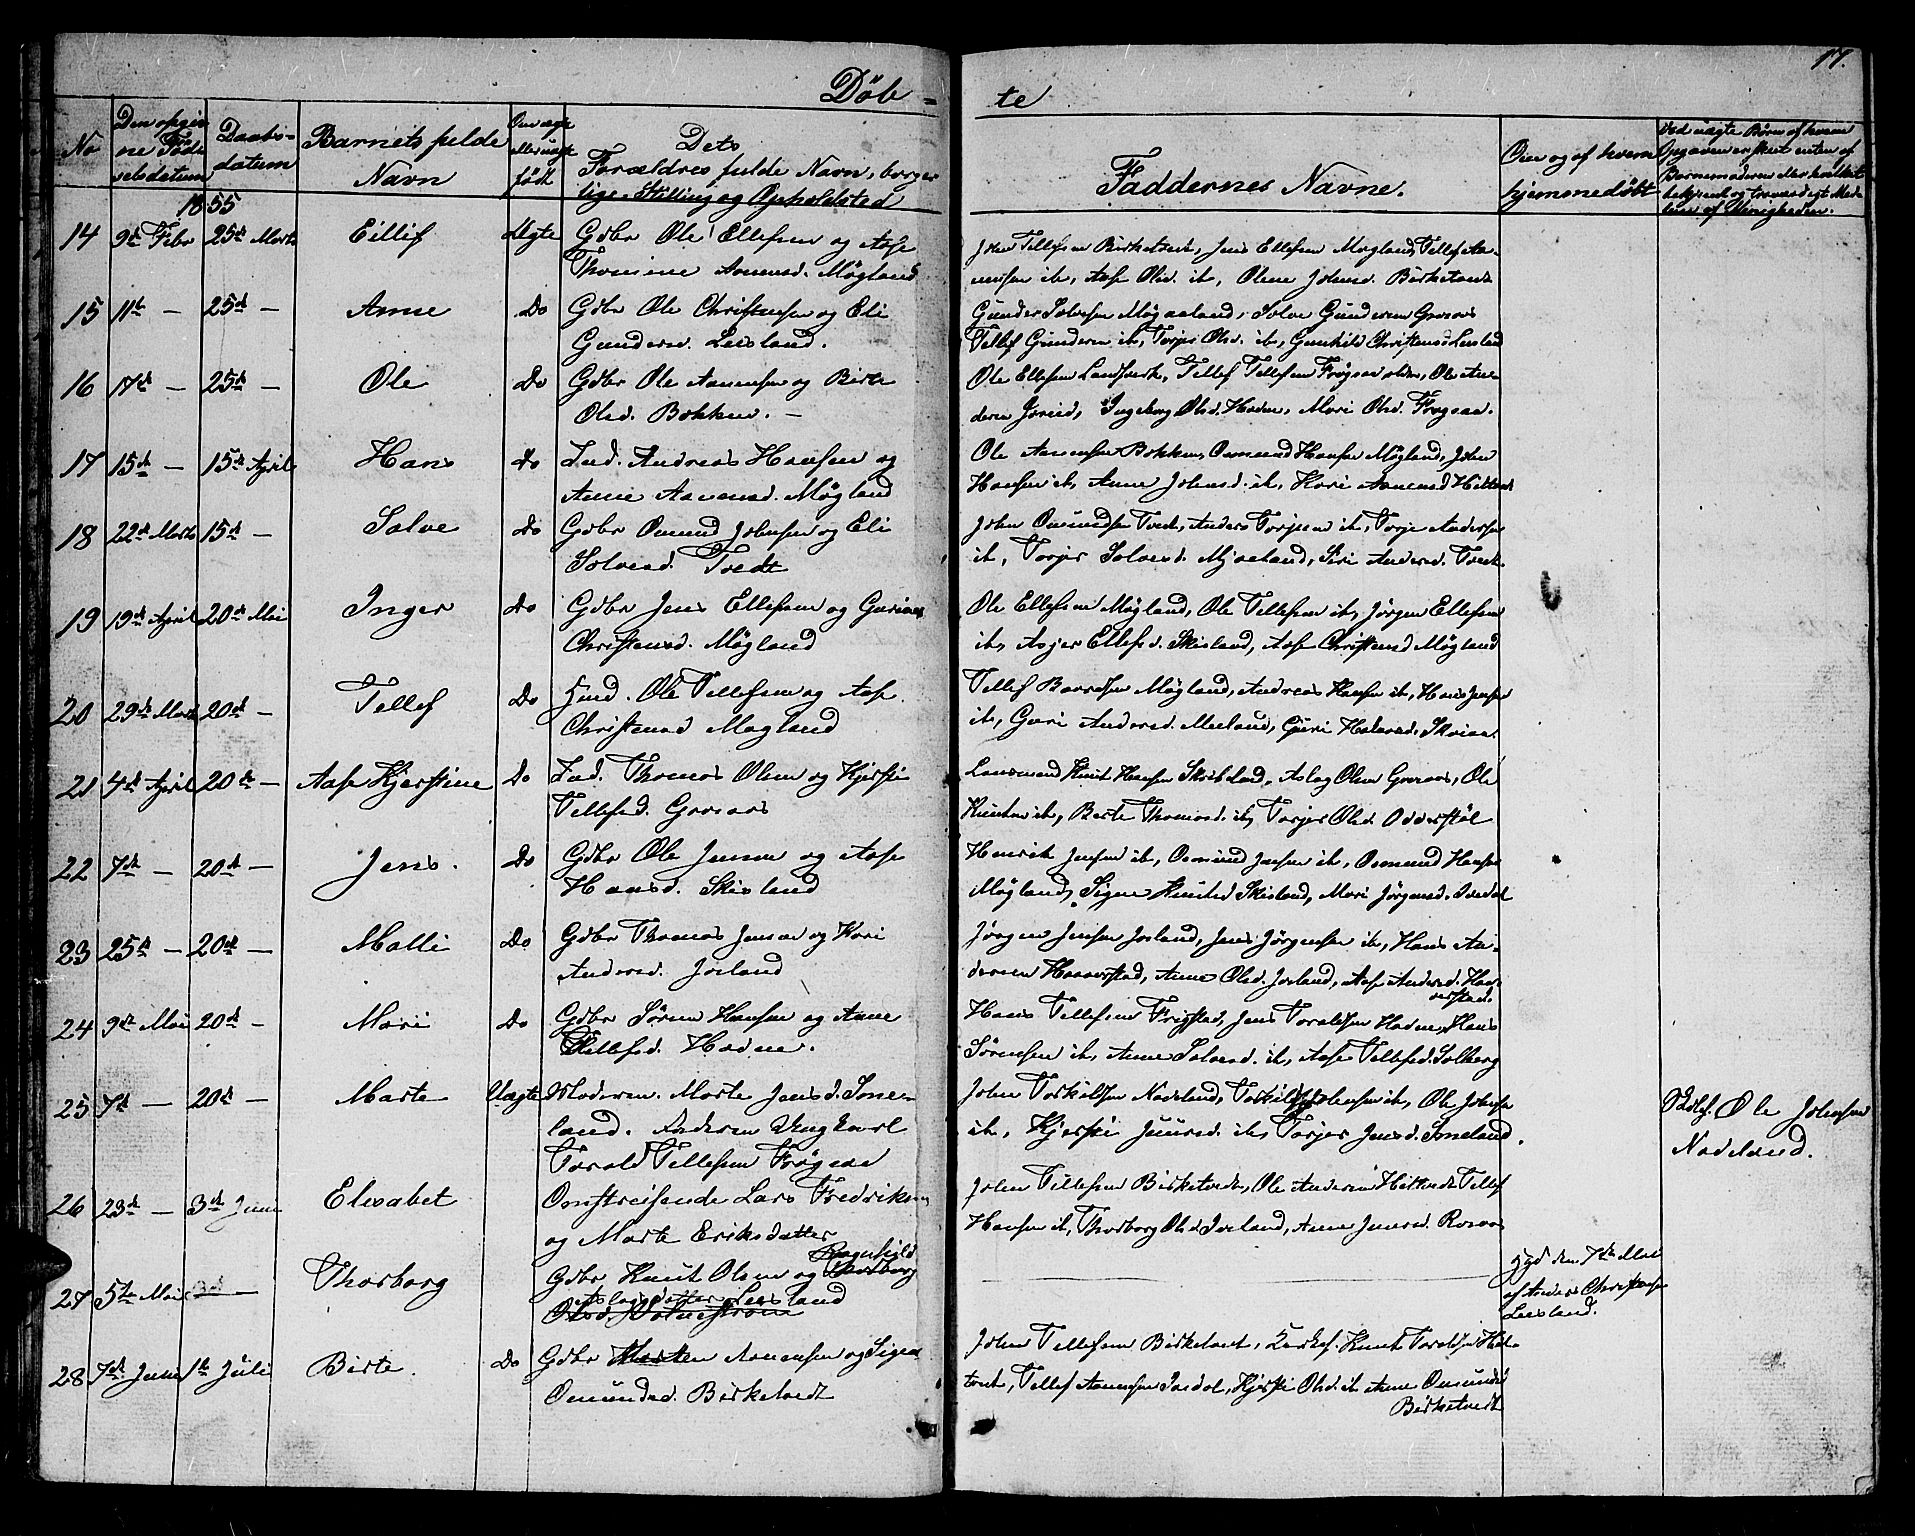 17.
Døb-
te
No
Den opgiv
ne Føds
velsdatum
Daabs-
datum
Barnets fulde
Navn
Om ægte
eller uægte
født
Dets
Forældres fulde Navn, borger
lige Stilling og Opholdsted
Faddernes Navne.
Om og af hvem
hjemmedøbt
1855
14 9de Febr 25de Marts Eillif Ægte Gdbr Ole Ellefsen og Aase
Thomine Aanensd. Møgland
John Tellefsen Birketvedt, Jens Ellefsen Møgland, Tellef Aa-
nensen it, Aase Olsd. it, Olene Johnsd. Birketvedt
15 11te — 25de — Anne Do Gdbr Ole Christensen og Eli
Gundersd. Leisland.
Gunder Solvesen Møgaaland, Solve Gundersen Grosaas
Tellef Gundersen it, Torjer Olsd. it, Gunhild Christensd Leisland
16 17de — 25de — Ole Do Gdbr Ole Aanensen og Birte
Olsd. Bokken. —
Ole Ellefsen Landsverk, Tellef Tellefsen Frøgsaa, Ole An-
dersen Joreid, Ingeborg Olsd. Hodne, Mari Olsd. Frøgsaa.
17 15de — 15de April Hans do Ind. Andreas Hansen og
Anne Aanensd. Møgland
Ole Aanensen Bokken, Osmund Hansen Møgland, John
Hansen it, Anne Johnsd. it, Kari Aanensd
18 22de Marts 15de — Solve Do Gdbr Omund Johnsen og Eli
Solvesd. Tvedt
John Omundsen Tvedt, Anders Torjesen it, Torje Andersen
it, Torjer Solvesd. Mjaaland, Siri Andersd. Tvedt.
19 19de April 20de Mai Inger Do Gdbr Jens Ellefsen og Gurine
Christensd. Møgland
Ole Ellefsen Møgland, Ole Tellefsen it, Jørgen Ellefsen
it, Asjer Ellefsd. Skisland, Aase Christensd Møgland
20 29de Marts 20de — Tellef Do Hmd. Ole Tellefsen og Aase
Christensd Møgland
Tellef Baardsen Møgland, Andreas Hansen it, Hans Jensen
it, Guri Andersd. Meeland, Guri Halvorsd.
21 4de April 20de — Aase Kjerstine Do Ind. Thomas Olsen og Kjersti
Tellefsd. Grosaas
Lensmand Knut Hansen Skisland, Aslag Olsen Grosaas, Ole
Knutsen it, Berte Thomasd. it, Torjer Olsd. Odderstøl
22 7de — 20de — Jens. Do Gdbr Ole Jensen og Aase
Hansd. Skisland
Henrik Jensen it, Osmund Jensen it, Osmund Hansen
Møgland, Signe Knutsd Skisland, Mari Jørgensd.
23 25de — 20de — Malli Do Gdbr Thomas Jensen og Kari
Andersd. Josland
Jørgen Jensen Josland, Jens Jørgensen it, Hans An-
dersen Haaverstad, Anne Olsd. Josland, Aase Andersd. Haa-
verstad.
24 9de Mai 20de — Mari Do Gdbr Søren Hansen og Anne
Tellefsd. Hodne.
Hans Tellefsen Frigstad, Jens Toraldsen Hodne, Hans
Sørensen it, Anne Solvesd. it, Aase Tellefsd. Solberg
25 7de — 20de — Marte Uægte Moderen. Marte Jensd. Sone-
land. Faderen Ungkarl
Torald Tellefsen Frøgsaa
John Torkildsen Nodeland, Torkild Johnsen it, Ole Johnsen
it, Kjersti Juursd. it, Torjer Jensd. Soneland.
Ole Johnsen
Nodeland.
26 23de — 3de Juni Elisabet Omstreifende Lars Fredriksen
og Marte Eriksdatter
John Tellefsen Birketvedt, Ole Andersen Heltvedt Tellef
Hansen it, Thorborg Olsd. Iveland, Anne Jensd. Rosaas
27 5te Mai 3de — Thorborg Gdbr Knut Olsen og Ragnhild
Thorborg
Aslagsdatter Leisland
Hjd den 7de Mai
af Anders Christensen
Leisland.
28 7de Juni 1te Juli Birte. Do Gdbr Morten Aanensen og Signe
Omundsd. Birketvedt
John Tellefsen Birketvedt, Kirkes. Knut Toraldsen Helle-
tvedt, Tellef Aanensen, Kjersti Olsd. it Anne Omundsd
Birketvedt